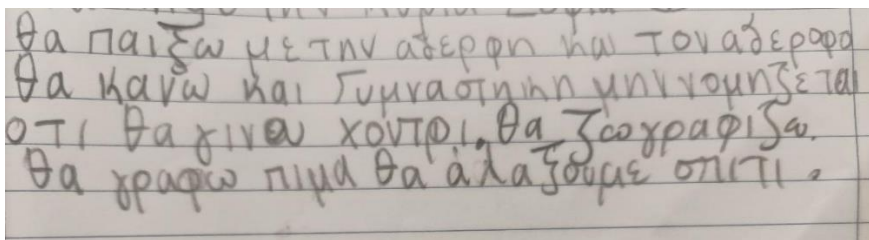 θα παιξω με την αδερφη και τον αδερφο
θα κανω και γυμναστηκη μην νομηζεται
οτι θα γινω χοντρι. θα ζωγραφιζω.
θα γραφω πιμα θα άλαξουμε σπιτι.